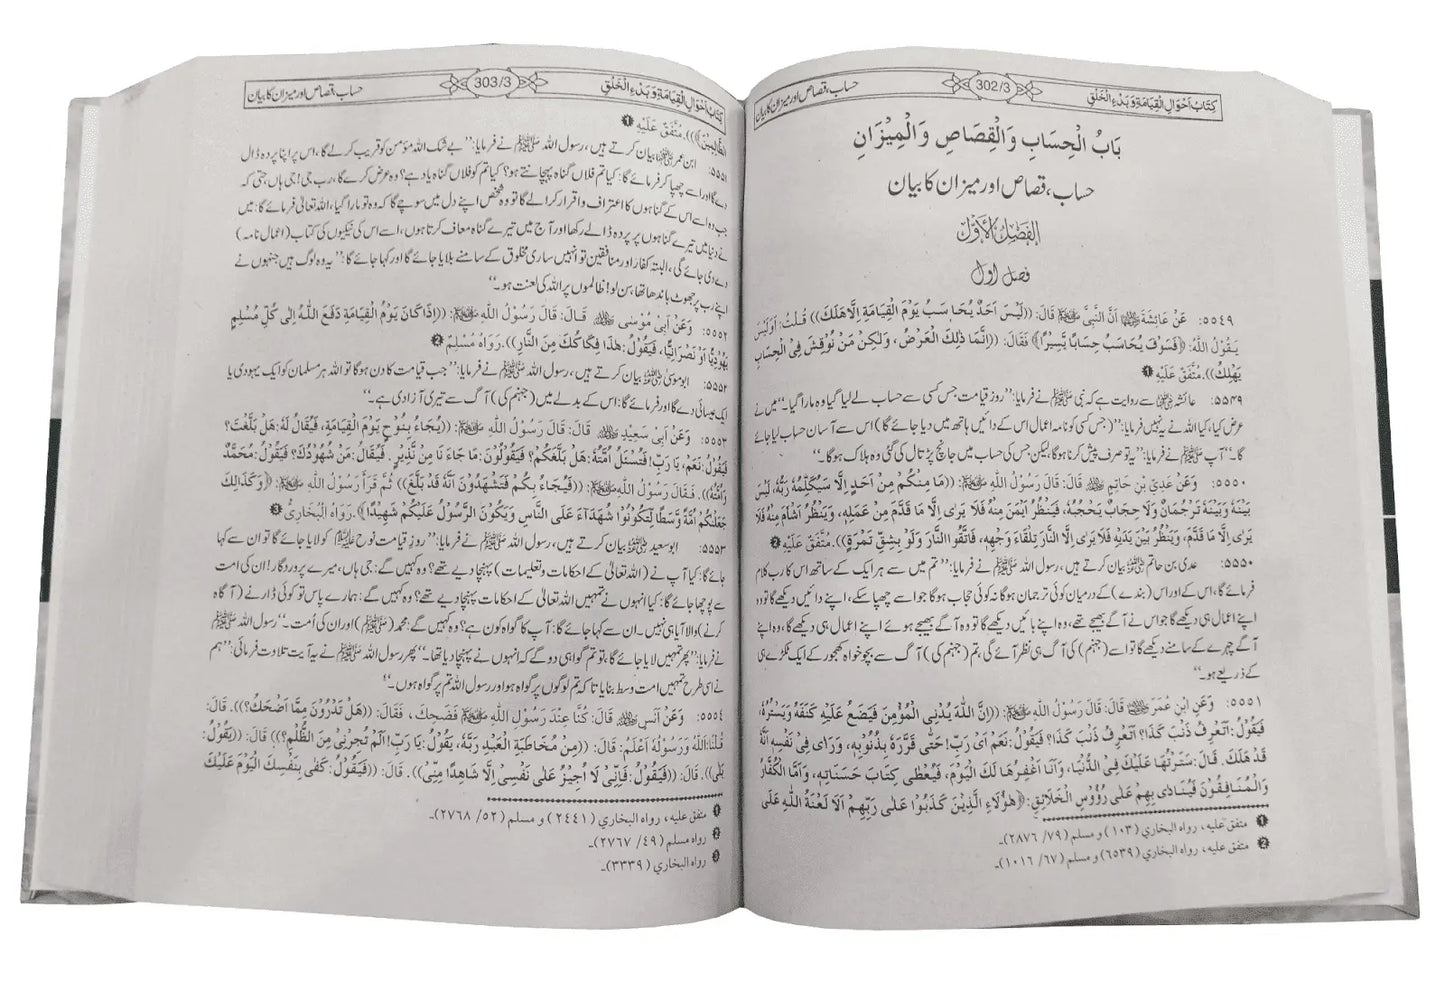 کِتَابُ اَحْوَالِ الْقِیَامَةِ وَبَدْءِ الْخَلْقِ 302/3 حساب، قصاص اور میزان کا بیان
بَابُ الْحِسَابِ وَالْقِصَاصِ وَالْمِيْزَانِ
حساب، قصاص اور میزان کا بیان
الفَصْلُ الْأَوَّلُ
فصل اول
٥٥٤٩: عَنْ عَائِشَةَ ؓ اَنَّ النَّبِيَّ ﷺ قَالَ: ((لَيْسَ اَحَدٌ يُحَاسَبُ يَوْمَ الْقِيَامَةِ اِلَّا هَلَكَ)) قُلْتُ: اَوَلَيْسَ
يَقُوْلُ اللهُ: ﴿فَسَوْفَ يُحَاسَبُ حِسَابًا يَّسِيْرًا﴾ فَقَالَ: ((اِنَّمَا ذٰلِكَ الْعَرْضُ، وَلٰكِنْ مَنْ نُوْقِشَ فِى الْحِسَابِ
يَهْلِكُ)). مُتَّفَقٌ عَلَيْهِ ❶
۵۵۴۹: عائشہ ؓ سے روایت ہے کہ نبی ﷺ نے فرمایا: ’’روز قیامت جس کسی سے حساب لے لیا گیا وہ مارا گیا۔‘‘ میں نے
عرض کیا، کیا اللہ نے یہ نہیں فرمایا: ’’(جس کسی کو نامہ اعمال اس کے دائیں ہاتھ میں دیا جائے گا) اس سے آسان حساب لیا جائے
گا۔‘‘ آپ ﷺ نے فرمایا: ’’یہ تو صرف پیش کرنا ہوگا، لیکن جس کی حساب میں جانچ پڑتال کی گئی وہ ہلاک ہوگا۔‘‘
٥٥٥٠: وَعَنْ عَدِيِّ بْنِ حَاتِمٍ ؓ قَالَ: قَالَ رَسُوْلُ اللهِ ﷺ: ((مَا مِنْكُمْ مِنْ اَحَدٍ اِلَّا سَيُكَلِّمُهٗ رَبُّهٗ، لَيْسَ
بَيْنَهٗ وَبَيْنَهٗ تَرْجُمَانٌ وَلَا حِجَابٌ يَحْجُبُهٗ، فَيَنْظُرُ اَيْمَنَ مِنْهُ فَلَا يَرٰى اِلَّا مَا قَدَّمَ مِنْ عَمَلِهٖ، وَيَنْظُرُ اَشْاَمَ مِنْهُ فَلَا
يَرٰى اِلَّا مَا قَدَّمَ، وَيَنْظُرُ بَيْنَ يَدَيْهِ فَلَا يَرٰى اِلَّا النَّارَ تِلْقَاءَ وَجْهِهٖ، فَاتَّقُوا النَّارَ وَلَوْ بِشِقِّ تَمْرَةٍ)). مُتَّفَقٌ عَلَيْهِ ❷
۵۵۵۰: عدی بن حاتم ؓ بیان کرتے ہیں، رسول اللہ ﷺ نے فرمایا: ’’تم میں سے ہر ایک کے ساتھ اس کا رب کلام
فرمائے گا، اس کے اور اس (بندے) کے درمیان کوئی ترجمان ہوگا نہ کوئی حجاب ہوگا جو اسے چھپا سکے، اپنے دائیں دیکھے گا تو وہ
اپنے اعمال ہی دیکھے گا جو اس نے آگے بھیجے تھے، وہ اپنے بائیں دیکھے گا تو وہ آگے بھیجے ہوئے اپنے اعمال ہی دیکھے گا، وہ اپنے
آگے چہرے کے سامنے دیکھے گا تو اسے (جہنم) کی آگ ہی نظر آئے گی، تم (جہنم کی) آگ سے بچو خواہ کھجور کے ایک ٹکڑے ہی
کے ذریعے ہو۔‘‘
٥٥٥١: وَعَنِ ابْنِ عُمَرَ ؓ قَالَ: قَالَ رَسُوْلُ اللهِ ﷺ: ((اِنَّ اللهَ يُدْنِى الْمُؤْمِنَ فَيَضَعُ عَلَيْهِ كَنَفَهٗ وَيَسْتُرُهٗ،
فَيَقُوْلُ: اَتَعْرِفُ ذَنْبَ كَذَا؟ اَتَعْرِفُ ذَنْبَ كَذَا؟ فَيَقُوْلُ: نَعَمْ اَىْ رَبِّ! حَتّٰى قَرَّرَهٗ بِذُنُوْبِهٖ، وَرَاٰى فِىْ نَفْسِهٖ اَنَّهٗ
قَدْ هَلَكَ. قَالَ: سَتَرْتُهَا عَلَيْكَ فِى الدُّنْيَا، وَاَنَا اَغْفِرُهَا لَكَ الْيَوْمَ، فَيُعْطٰى كِتَابَ حَسَنَاتِهٖ، وَاَمَّا الْكُفَّارُ
وَالْمُنَافِقُوْنَ فَيُنَادٰى بِهِمْ عَلٰى رُؤُوْسِ الْخَلَائِقِ: ﴿هٰؤُلَاءِ الَّذِيْنَ كَذَبُوْا عَلٰى رَبِّهِمْ اَلَا لَعْنَةُ اللهِ عَلَى
❶ متفق عليه، رواه البخاري (١٠٣) و مسلم (٧٩/ ٢٨٧٦)۔
❷ متفق عليه، رواه البخاري (٦٥٣٩) و مسلم (٦٧/ ١٠١٦)۔
کِتَابُ اَحْوَالِ الْقِیَامَةِ وَبَدْءِ الْخَلْقِ 303/3 حساب، قصاص اور میزان کا بیان
الظَّالِمِيْنَ﴾)). مُتَّفَقٌ عَلَيْهِ ❶
۵۵۵۱: ابن عمر ؓ بیان کرتے ہیں، رسول اللہ ﷺ نے فرمایا: ’’بے شک اللہ مؤمن کو قریب کرلے گا، اس پر اپنا پردہ ڈال
دے گا اور اسے چھپا کر فرمائے گا: کیا تم فلاں گناہ پہچانتے ہو؟ کیا تم کو فلاں گناہ یاد ہے؟ وہ عرض کرے گا، رب جی! جی ہاں، حتی کہ
جب وہ اسے اس کے گناہوں کا اعتراف و اقرار کرالے گا تو وہ شخص اپنے دل میں سوچے گا کہ وہ تو مارا گیا، اللہ تعالیٰ فرمائے گا: میں
نے دنیا میں تیرے گناہوں پر پردہ ڈالے رکھا اور آج میں تیرے گناہ معاف کرتا ہوں، اسے اس کی نیکیوں کی کتاب (اعمال نامہ)
دے دی جائے گی، البتہ کفار اور منافقین تو انہیں ساری مخلوق کے سامنے بلایا جائے گا اور کہا جائے گا: ’’یہ وہ لوگ ہیں جنہوں نے
اپنے رب پر جھوٹ باندھا تھا، سن لو! ظالموں پر اللہ کی لعنت ہو۔‘‘
٥٥٥٢: وَعَنْ اَبِىْ مُوْسٰى ؓ قَالَ: قَالَ رَسُوْلُ اللهِ ﷺ: ((اِذَا كَانَ يَوْمُ الْقِيَامَةِ دَفَعَ اللهُ اِلٰى كُلِّ مُسْلِمٍ
يَهُوْدِيًّا اَوْ نَصْرَانِيًّا، فَيَقُوْلُ: هٰذَا فِكَاكُكَ مِنَ النَّارِ)). رَوَاهُ مُسْلِمٌ ❷
۵۵۵۲: ابو موسیٰ ؓ بیان کرتے ہیں، رسول اللہ ﷺ نے فرمایا: ’’جب قیامت کا دن ہوگا تو اللہ ہر مسلمان کو ایک یہودی یا
ایک عیسائی دے گا اور فرمائے گا: اس کے بدلے میں (جہنم کی) آگ سے تیری آزادی ہے۔‘‘
٥٥٥٣: وَعَنْ اَبِىْ سَعِيْدٍ ؓ قَالَ: قَالَ رَسُوْلُ اللهِ ﷺ: ((يُجَاءُ بِنُوْحٍ يَوْمَ الْقِيَامَةِ، فَيُقَالُ لَهٗ: هَلْ بَلَّغْتَ؟
فَيَقُوْلُ: نَعَمْ، يَا رَبِّ! فَتُسْئَلُ اُمَّتُهٗ: هَلْ بَلَّغَكُمْ؟ فَيَقُوْلُوْنَ: مَا جَاءَ نَا مِنْ نَّذِيْرٍ. فَيُقَالُ: مَنْ شُهُوْدُكَ؟ فَيَقُوْلُ: مُحَمَّدٌ
وَاُمَّتُهٗ)). فَقَالَ رَسُوْلُ اللهِ ﷺ: ((فَيُجَاءُ بِكُمْ فَتَشْهَدُوْنَ اَنَّهٗ قَدْ بَلَّغَ)) ثُمَّ قَرَأَ رَسُوْلُ اللهِ ﷺ: ﴿وَكَذَالِكَ
جَعَلْنٰكُمْ اُمَّةً وَّسَطًا لِّتَكُوْنُوْا شُهَدَآءَ عَلَى النَّاسِ وَيَكُوْنَ الرَّسُوْلُ عَلَيْكُمْ شَهِيْدًا﴾. رَوَاهُ الْبُخَارِىُّ ❸
۵۵۵۳: ابو سعید ؓ بیان کرتے ہیں، رسول اللہ ﷺ نے فرمایا: ’’روز قیامت نوح ؑ کو لایا جائے گا تو ان سے کہا
جائے گا: کیا آپ نے (اللہ تعالیٰ کے احکامات و تعلیمات) پہنچا دیے تھے؟ وہ کہیں گے: جی ہاں، میرے پروردگار! ان کی امت
سے پوچھا جائے گا: کیا انہوں نے تمہیں اللہ تعالیٰ کے احکامات پہنچا دیے تھے؟ وہ کہیں گے: ہمارے پاس تو کوئی ڈرانے (آگاہ
کرنے) والا آیا ہی نہیں۔ ان سے کہا جائے گا: آپ کا گواہ کون ہے؟ وہ کہیں گے: محمد (ﷺ) اور ان کی امت۔‘‘ رسول اللہ ﷺ
نے فرمایا: ’’پھر تمہیں لایا جائے گا، تو تم گواہی دو گے کہ انہوں نے پہنچا دیا تھا۔‘‘ پھر رسول اللہ ﷺ نے یہ آیت تلاوت فرمائی: ’’ہم
نے اسی طرح تمہیں امت وسط بنایا تاکہ تم لوگوں پر گواہ ہو اور رسول اللہ تم پر گواہ ہوں۔‘‘
٥٥٥٤: وَعَنْ اَنَسٍ ؓ قَالَ: كُنَّا عِنْدَ رَسُوْلِ اللهِ ﷺ فَضَحِكَ، فَقَالَ: ((هَلْ تَدْرُوْنَ مِمَّا اَضْحَكُ؟)). قَالَ:
قُلْنَا: اَللهُ وَرَسُوْلُهٗ اَعْلَمُ. قَالَ: ((مِنْ مُخَاطَبَةِ الْعَبْدِ رَبَّهٗ، يَقُوْلُ: يَا رَبِّ! اَلَمْ تُجِرْنِىْ مِنَ الظُّلْمِ؟)) قَالَ: ((يَقُوْلُ:
بَلٰى)). قَالَ: ((فَيَقُوْلُ: فَاِنِّىْ لَا اُجِيْزُ عَلٰى نَفْسِىْ اِلَّا شَاهِدًا مِنِّىْ)). قَالَ: ((فَيَقُوْلُ: كَفٰى بِنَفْسِكَ الْيَوْمَ عَلَيْكَ
❶ متفق عليه، رواه البخاري (٢٤٤١) و مسلم (٥٢/ ٢٧٦٨)۔
❷ رواه مسلم (٤٩/ ٢٧٦٧)۔
❸ رواه البخاري (٣٣٣٩)۔